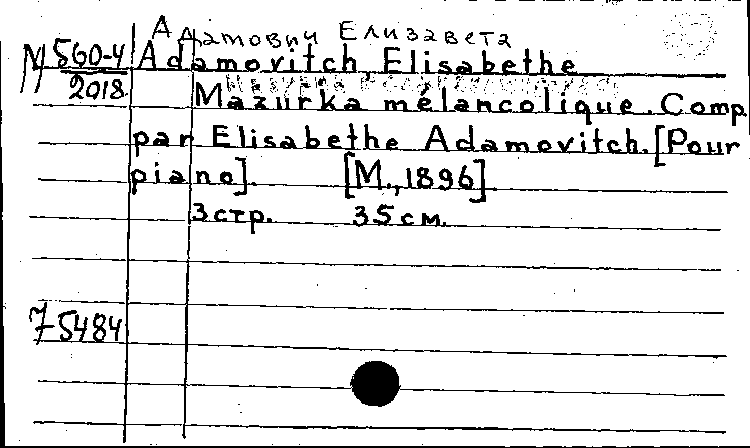 А Адамович Елизавета
М 560-4 Adamovitch, Elisabethe
2018 Mazurka mélancolique. Comp.
par Elisabethe Adamovitch. [Pour
piano]. [М., 1896].
3 стр. 35 см.
7-5484